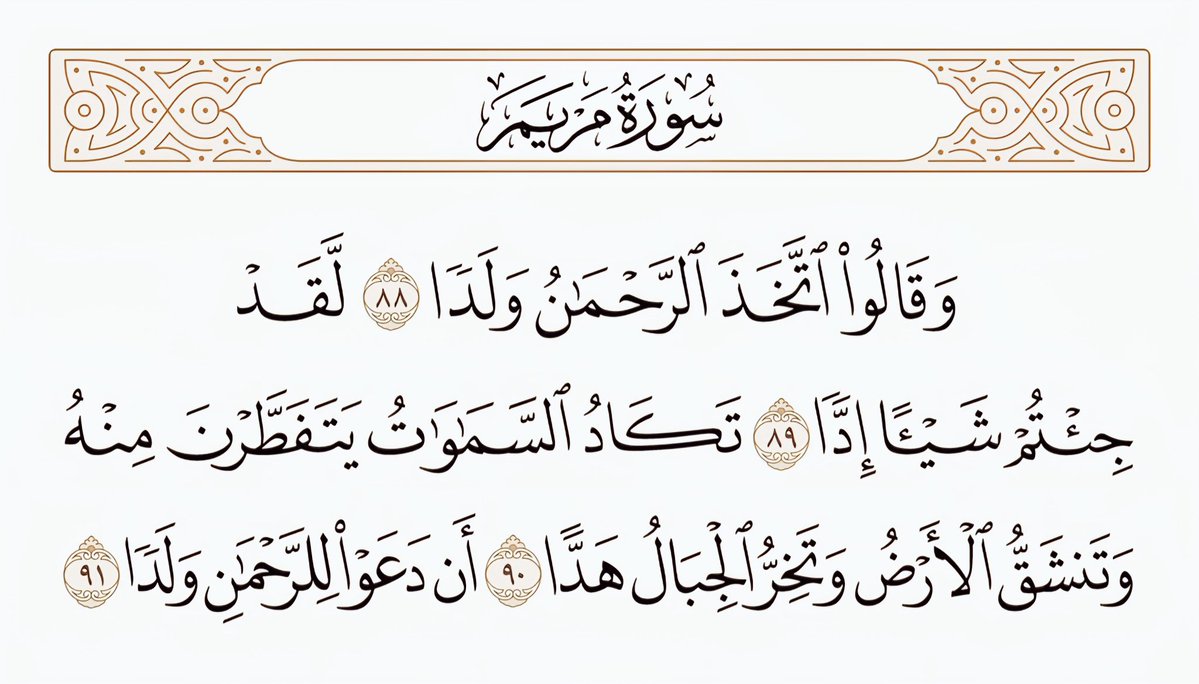 سُورَةُ مَرْيَمَ
وَقَالُوا۟ ٱتَّخَذَ ٱلرَّحْمَٰنُ وَلَدًا ٨٨ لَّقَدْ
جِئْتُمْ شَيْـًٔا إِدًّا ٨٩ تَكَادُ ٱلسَّمَٰوَٰتُ يَتَفَطَّرْنَ مِنْهُ
وَتَنشَقُّ ٱلْأَرْضُ وَتَخِرُّ ٱلْجِبَالُ هَدًّا ٩٠ أَن دَعَوْا۟ لِلرَّحْمَٰنِ وَلَدًا ٩١